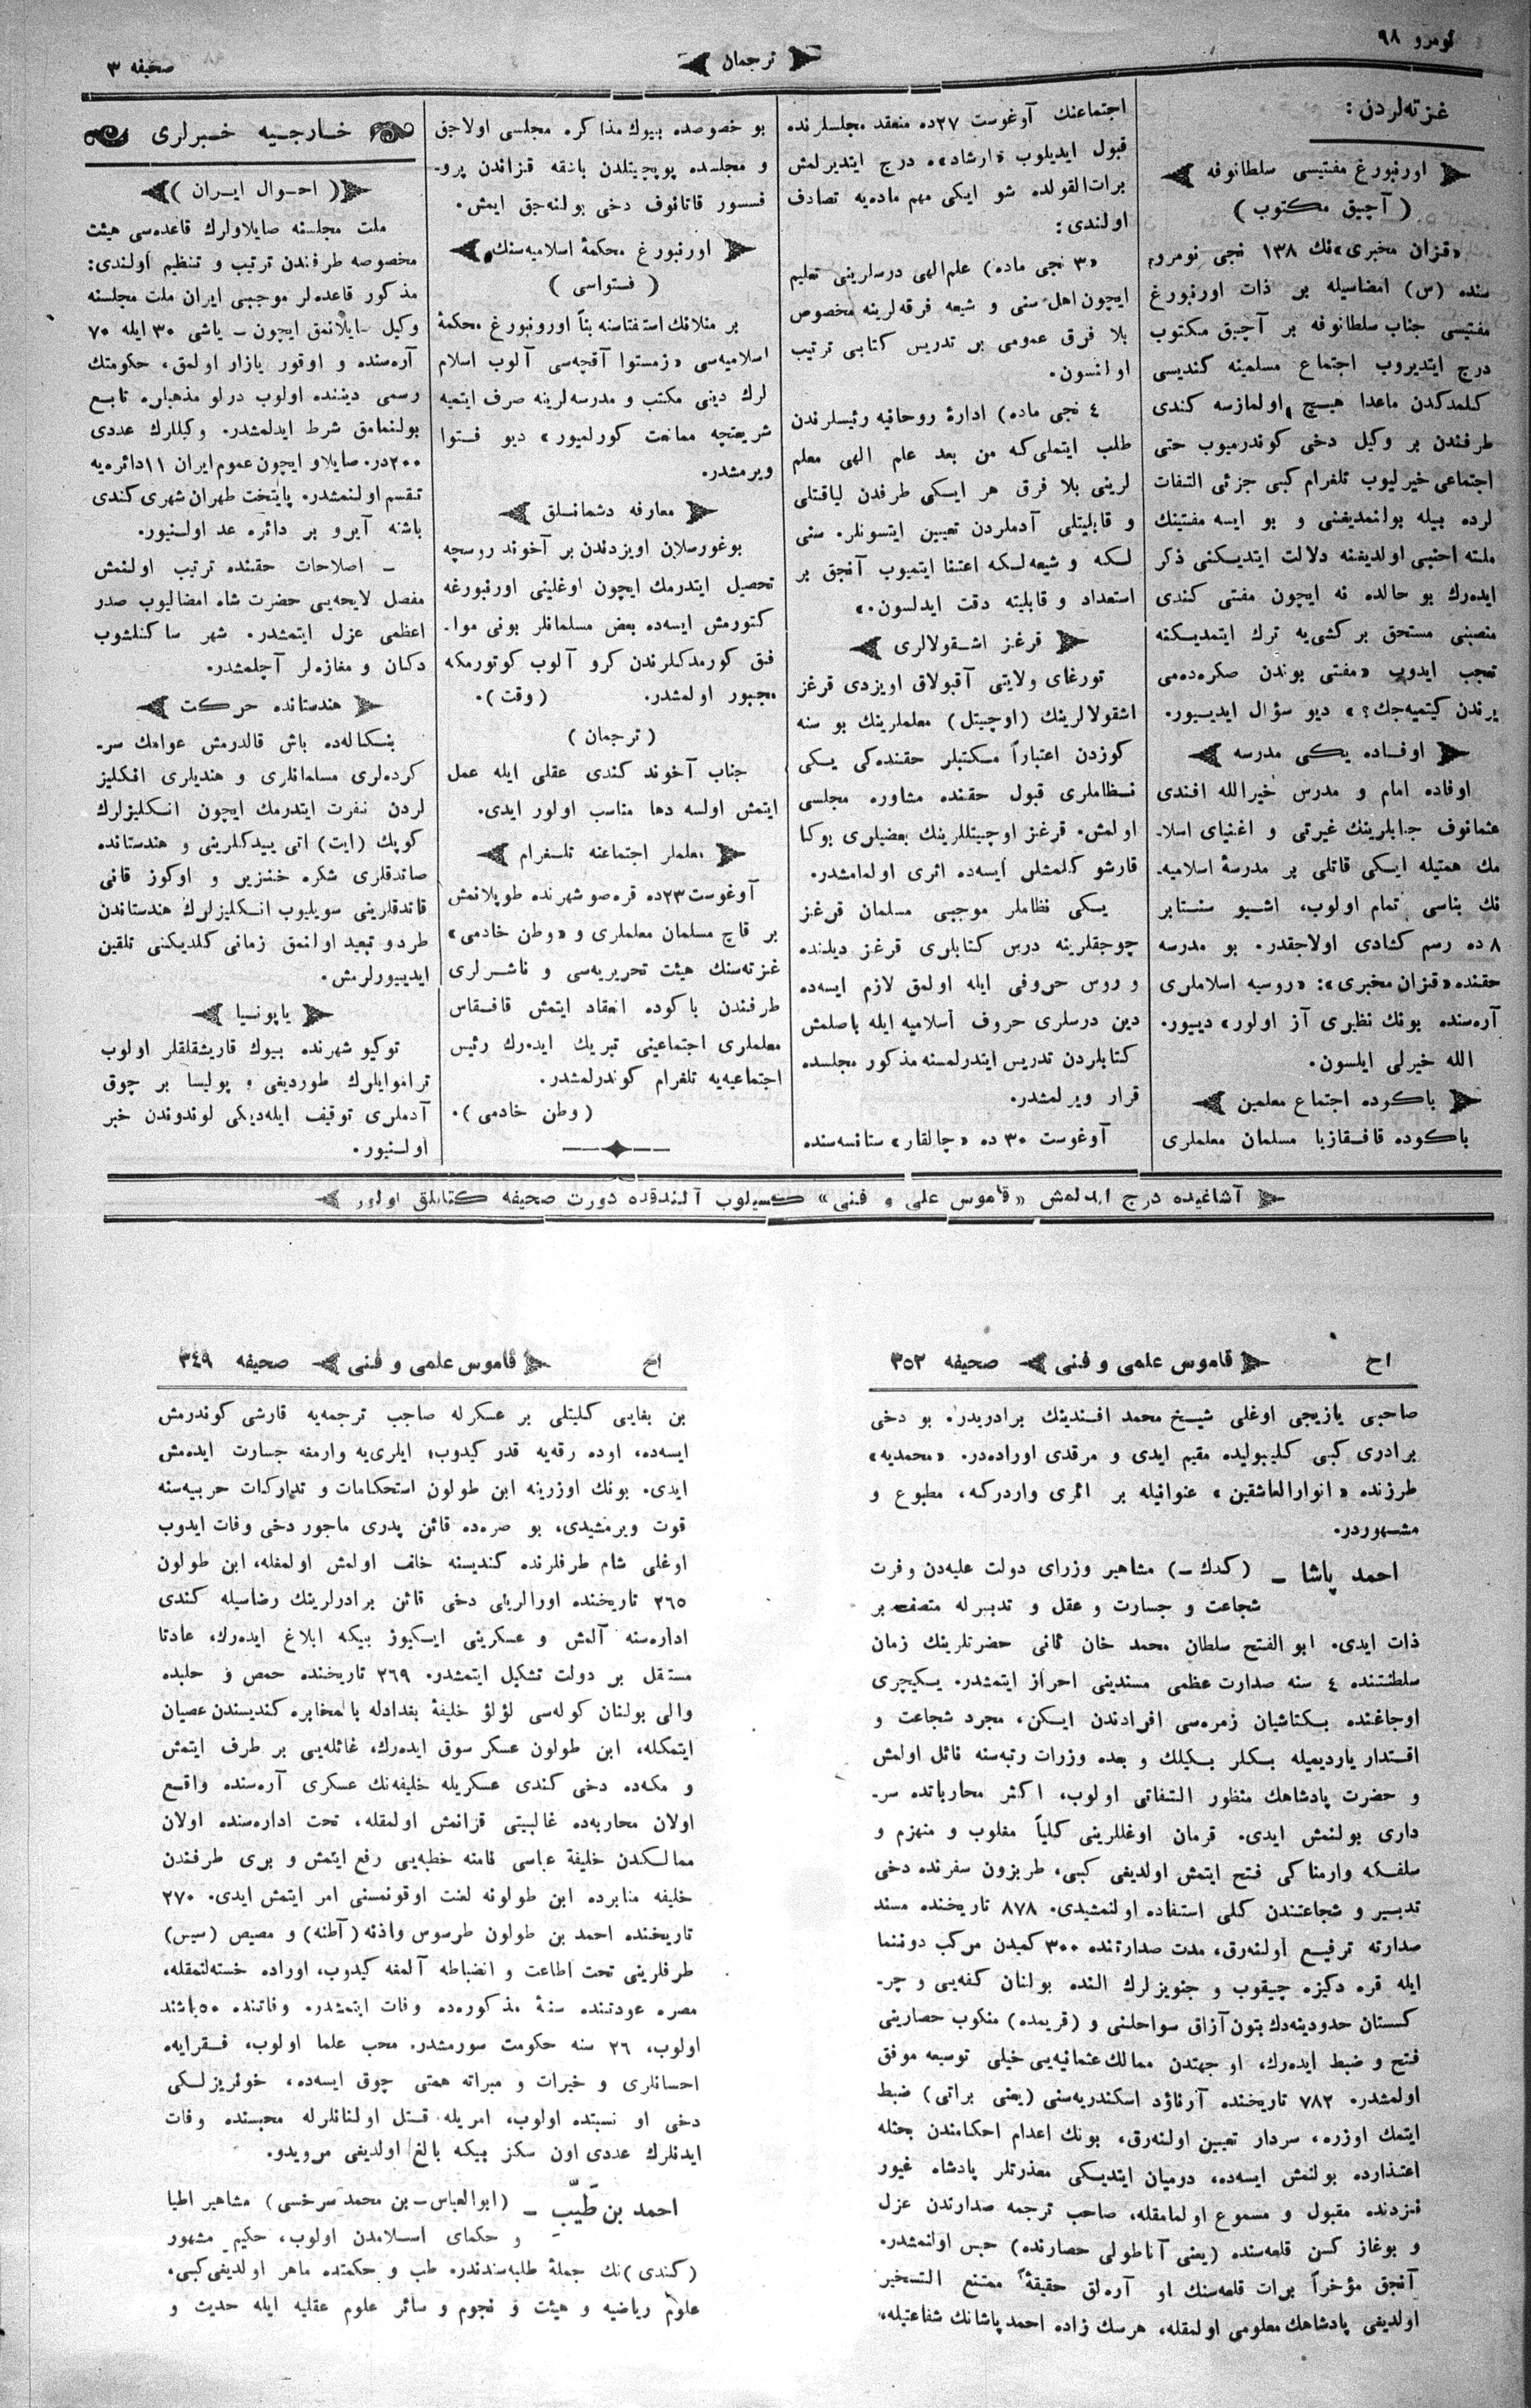 نومرو ٩٨
ترجمان
صحیفه ٣
غزته‌لردن :
اورنبورغ مفتیسی سلطانوفه
( آچیق مکتوب )
«قزان مخبری»نك ١٣٨ نجی نومروـ
سنده (س) امضاسیله بر ذات اورنبورغ
مفتیسی جناب سلطانوفه بر آچیق مکتوب
درج ایتدیروب اجتماع مسلمینه کندیسی
کلمدکدن ماعدا هیچ اولمازسه کندی
طرفندن بر وکیل دخی کوندرمیوب حتی
اجتماعی خیرلیوب تلغرام کبی جزئی التفات
لرده بیله بولنمدیغنی و بو ایسه مفتینك
ملته اجنبی اولدیغنه دلالت ایتدیکنی ذکر
ایده‌رك بو حالده نه ایچون مفتی کندی
منصبنی مستحق بر کشی‌یه ترك ایتمدیکنه
تعجب ایدوب «مفتی بوندن صکره‌ده‌می
یرندن کیتمیه‌جك؟» دیو سؤال ایدییور.
اوفاده یکی مدرسه
اوفاده امام و مدرس خیرالله افندی
عثمانوف جنابلرینك غیرتی و اغنیای اسلاـ
مك همتیله ایکی قاتلی بر مدرسهٔ اسلامیه‌ـ
نك بناسی تمام اولوب، اشبو سنتابر
٨ ده رسم کشادی اولاجقدر. بو مدرسه
حقنده «قزان مخبری»: «روسیه اسلاملری
آره‌سنده بونك نظیری آز اولور» دییور.
الله خیرلی ایلسون.
باکوده اجتماع معلمین
باکوده قافقازیا مسلمان معلملری
اجتماعنك آوغوست ٢٧ده منعقد مجلسلرنده
قبول ایدیلوب «ارشاد»ه درج ایتدیرلمش
برات‌القولده شو ایکی مهم ماده‌یه تصادف
اولندی:
«٣ نجی ماده) علم‌الهی درسلرینی تعلیم
ایچون اهل سنی و شیعه فرقه‌لرینه مخصوص
بلا فرق عمومی بر تدریس کتابی ترتیب
اولنسون.
٤ نجی ماده) ادارهٔ روحانیه رئیسلرندن
طلب ایتملی‌که من بعد علم الهی معلم
لرینی بلا فرق هر ایکی طرفدن لیاقتلی
و قابلیتلی آدملردن تعیین ایتسونلر. سنی
لکه و شیعه‌لکه اعتنا ایتمیوب آنجق بر
استعداد و قابلیته دقت ایدلسون.»
قرغز اشقولالری
تورغای ولایتی آقبولاق اویزدی قرغز
اشقولالرینك (اوچیتل) معلملرینك بو سنه
کوزدن اعتباراً مکتبلر حقنده‌کی یکی
نظاملری قبول حقنده مشاوره مجلسی
اولمش. قرغز اوچیتللرینك بعضیلری بوکا
قارشو کلمشلر ایسه‌ده اثری اولمامشدر.
یکی نظاملر موجبی مسلمان قرغز
چوجقلرینه درس کتابلری قرغز دیلنده
و روس حروفی ایله اولمق لازم ایسه‌ده
دین درسلری حروف اسلامیه ایله باصلمش
کتابلردن تدریس ایتدرلمسنه مذکور مجلسده
قرار ویرلمشدر.
آوغوست ٣٠ ده «چالقار» ستانسه‌سنده
بو خصوصده بیوك مذاکره مجلسی اولاجق
و مجلسده پوپچیتلدن باشقه قزاندن پروـ
فسسور قاتانوف دخی بولنه‌جق ایمش.
اورنبورغ محکمهٔ اسلامیه‌سنك
( فتواسی )
بر منلانك استفتاسنه بناً اورونبورغ محکمهٔ
اسلامیه‌سی «زمستوا آقچه‌سی آلوب اسلام
لرك دینی مکتب و مدرسه‌لرینه صرف ایتمیه
شریعتچه ممانعت کورلمیور» دیو فتوا
ویرمشدر.
معارفه دشمانلق
بوغورسلان اویزدندن بر آخوند روسچه
تحصیل ایتدرمك ایچون اوغلینی اورنبورغه
کتورمش ایسه‌ده بعض مسلمانلر بونی مواـ
فق کورمدکلرندن کرو آلوب کوتورمکه
مجبور اولمشدر. (وقت).
( ترجمان )
جناب آخوند کندی عقلی ایله عمل
ایتمش اولسه دها مناسب اولور ایدی.
معلملر اجتماعنه تلغرام
آوغوست ٢٣ده قره‌صو شهرنده طوپلانمش
بر قاچ مسلمان معلملری و «وطن خادمی»
غزته‌سنك هیئت تحریریه‌سی و ناشرلری
طرفندن باکوده انعقاد ایتمش قافقاس
معلملری اجتماعینی تبریك ایده‌رك رئیس
اجتماعیه‌یه تلغرام کوندرلمشدر.
(وطن خادمی).
خارجیه خبرلری
( احوال ایران )
ملت مجلسنه صایلاولرك قاعده‌سی هیئت
مخصوصه طرفندن ترتیب و تنظیم اولندی:
مذکور قاعده‌لر موجبی ایران ملت مجلسنه
وکیل صایلانمق ایچون ـ یاشی ٣٠ ایله ٧٠
آره‌سنده و اوقور یازار اولمق، حکومتك
رسمی دیننده اولوب درلو مذهبلره تابع
بولنمامق شرط ایدلمشدر. وکیللرك عددی
٢٠٠در. صایلاو ایچون عموم ایران ١١ دائره‌یه
تقسم اولنمشدر. پایتخت طهران شهری کندی
باشنه آیرو بر دائره عد اولنیور.
ـ اصلاحات حقنده ترتیب اولنمش
مفصل لایحه‌یی حضرت شاه امضالیوب صدر
اعظمی عزل ایتمشدر. شهر ساکنلشوب
دکان و مغازه‌لر آچلمشدر.
هندستانده حرکت
بنکاله‌ده باش قالدرمش عوامك سرـ
کرده‌لری مسلمانلری و هندیلری انکلیز
لردن نفرت ایتدرمك ایچون انکلیزلرك
کوپك (ایت) اتی ییدکلرینی و هندستانده
صاتدقلری شکره خنزیر و اوکوز قانی
قاتدقلرینی سویلیوب انکلیزلرك هندستاندن
طرد و تبعید اولنمق زمانی کلدیکنی تلقین
ایدییورلرمش.
یاپونیا
توکیو شهرنده بیوك قاریشقلقلر اولوب
تراموایلرك طوردیغی و پولیسا بر چوق
آدملری توقیف ایله‌دیکی لوندوندن خبر
اولنیور.
آشاغیده درج ایدلمش «قاموس علمی و فنی» کسیلوب آلندقده دورت صحیفه کتابلق اولور
اح قاموس علمی و فنی صحیفه ٣٥٢
صاحبی یازیجی اوغلی شیخ محمد افندینك برادریدر. بو دخی
برادری کبی کلیبولیده مقیم ایدی و مرقدی اوراده‌در. «محمدیه»
طرزنده «انوارالعاشقین» عنوانیله بر اثری واردرکه، مطبوع و
مشهوردر.
احمد پاشا ـ (کدك ـ) مشاهیر وزرای دولت علیه‌دن وفرت
شجاعت و جسارت و عقل و تدبیرله متصف بر
ذات ایدی. ابو الفتح سلطان محمد خان ثانی حضرتلرینك زمان
سلطنتنده ٤ سنه صدارت عظمی مسندینی احراز ایتمشدر. یکیچری
اوجاغنده بکتاشیان زمره‌سی افرادندن ایکن، مجرد شجاعت و
اقتدار یاردیمیله بکلر بکیلك و بعده وزرات رتبه‌سنه نائل اولمش
و حضرت پادشاهك منظور التفاتی اولوب، اکثر محارباتده سرـ
داری بولنمش ایدی. قرمان اوغللرینی کلیاً مغلوب و منهزم و
سلفکه وارمناکی فتح ایتمش اولدیغی کبی، طربزون سفرنده دخی
تدبیر و شجاعتندن کلی استفاده اولنمشیدی. ٨٧٨ تاریخنده مسند
صدارته ترفیع اولنه‌رق، مدت صدارتنده ٣٠٠ کمیدن مرکب دوننما
ایله قره دکیزه چیقوب و جنویزلرك النده بولنان کفه‌یی و چرـ
کستان حدودینه‌دك بتون آزاق سواحلنی و (قریمده) منکوب حصارینی
فتح و ضبط ایده‌رك، او جهتدن ممالك عثمانیه‌یی خیلی توسیعه موفق
اولمشدر. ٧٨٢ تاریخنده آرناؤد اسکندریه‌سنی (یعنی براتی) ضبط
ایتمك اوزره، سردار تعیین اولنه‌رق، بونك اعدام احکامندن بحثله
اعتذارده بولنمش ایسه‌ده، درمیان ایتدیکی معذرتلر پادشاه غیور
نزدنده مقبول و مسموع اولمامقله، صاحب ترجمه صدارتدن عزل
و بوغاز کسن قلعه‌سنده (یعنی آناطولی حصارنده) حبس اولنمشدر.
آنجق مؤخراً برات قلعه‌سنك او آره‌لق حقیقةً ممتنع التسخیر
اولدیغی پادشاهك معلومی اولمقله، هرسك زاده احمد پاشانك شفاعتیله،
اح قاموس علمی و فنی صحیفه ٣٤٩
بن بغایی کلیتلی بر عسکرله صاحب ترجمه‌یه قارشی کوندرمش
ایسه‌ده، اوده رقه‌یه قدر کیدوب، ایلری‌یه وارمغه جسارت ایده‌مش
ایدی. بونك اوزرینه ابن طولون استحکامات و تدارکات حربیه‌سنه
قوت ویرمشیدی، بو صره‌ده قائن پدری ماجور دخی وفات ایدوب
اوغلی شام طرفلرنده کندیسنه خلف اولمش اولمغله، ابن طولون
٢٦٥ تاریخنده اورالرینی دخی قائن برادرلرینك رضاسیله کندی
اداره‌سنه آلمش و عسکرینی ایکیوز بیکه ابلاغ ایده‌رك، عادتا
مستقل بر دولت تشکیل ایتمشدر. ٢٦٩ تاریخنده حمص و حلبده
والی بولنان کوله‌سی لؤلؤ خلیفهٔ بغدادله بالمخابره کندیسندن عصیان
ایتمکله، ابن طولون عسکر سوق ایده‌رك، غائله‌یی بر طرف ایتمش
و مکه‌ده دخی کندی عسکریله خلیفه‌نك عسکری آره‌سنده واقع
اولان محاربه‌ده غالبیتی قزانمش اولمقله، تحت اداره‌سنده اولان
ممالکدن خلیفهٔ عباسی نامنه خطبه‌یی رفع ایتمش و بری طرفندن
خلیفه منابرده ابن طولونه لعنت اوقونمسنی امر ایتمش ایدی. ٢٧٠
تاریخنده احمد بن طولون طرسوس واذنه (آطنه) و مصیص (سیس)
طرفلرینی تحت اطاعت و انضباطه آلمغه کیدوب، اوراده خسته‌لنمقله،
مصره عودتنده سنهٔ مذکوره‌ده وفات ایتمشدر. وفاتنده ٥٠ یاشند
اولوب، ٢٦ سنه حکومت سورمشدر. محب علما اولوب، فقرایه
احسانلری و خیرات و مبراته همتی چوق ایسه‌ده، خونریزلکی
دخی او نسبتده اولوب، امریله قتل اولنانلرله محبسنده وفات
ایدنلرك عددی اون سکز بیکه بالغ اولدیغی مرویدو.
احمد بن طَیّب ـ (ابوالعباس ـ بن محمد سرخسی) مشاهیر اطبا
و حکمای اسلامدن اولوب، حکیم مشهور
(کندی)نك جملهٔ طلبه‌سندندر. طب و حکمتده ماهر اولدیغی کبی،
علوم ریاضیه و هیئت و نجوم و سائر علوم عقلیه ایله حدیث و